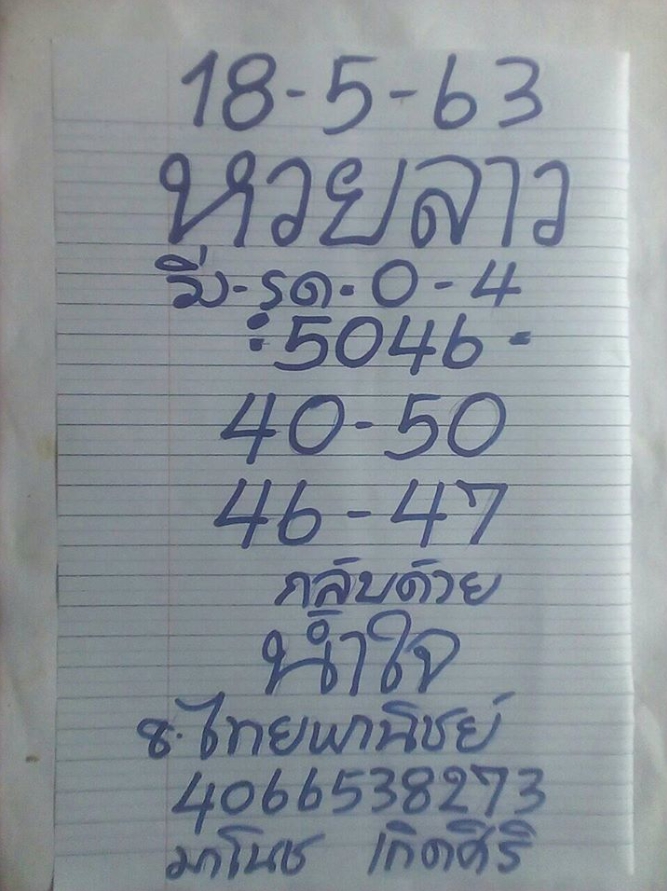 18-5-63
หวยลาว
วิ่ง-รูด-0-4
:5046-
40-50
46-47
กลับด้วย
น้ำใจ
ธ.ไทยพานิชย์
4066538273
มาโนช เกิดศิริ